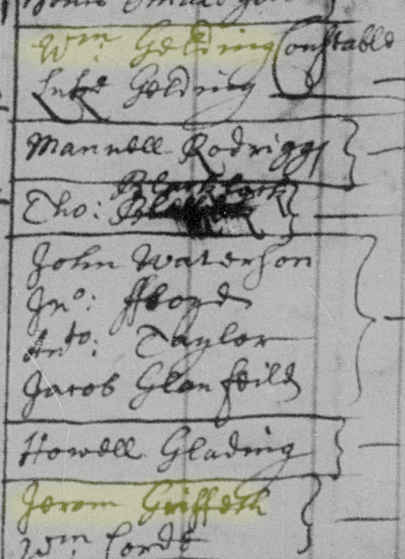 Wm Gelding Constable
Luke Gelding
Mannell Rodriggs
Tho: Blacklock
John Waterson
Jno: ffloyd
Anto: Taylor
Jacob Glanfeild
Howell Glading
Jerom Griffeth
Wm Cords